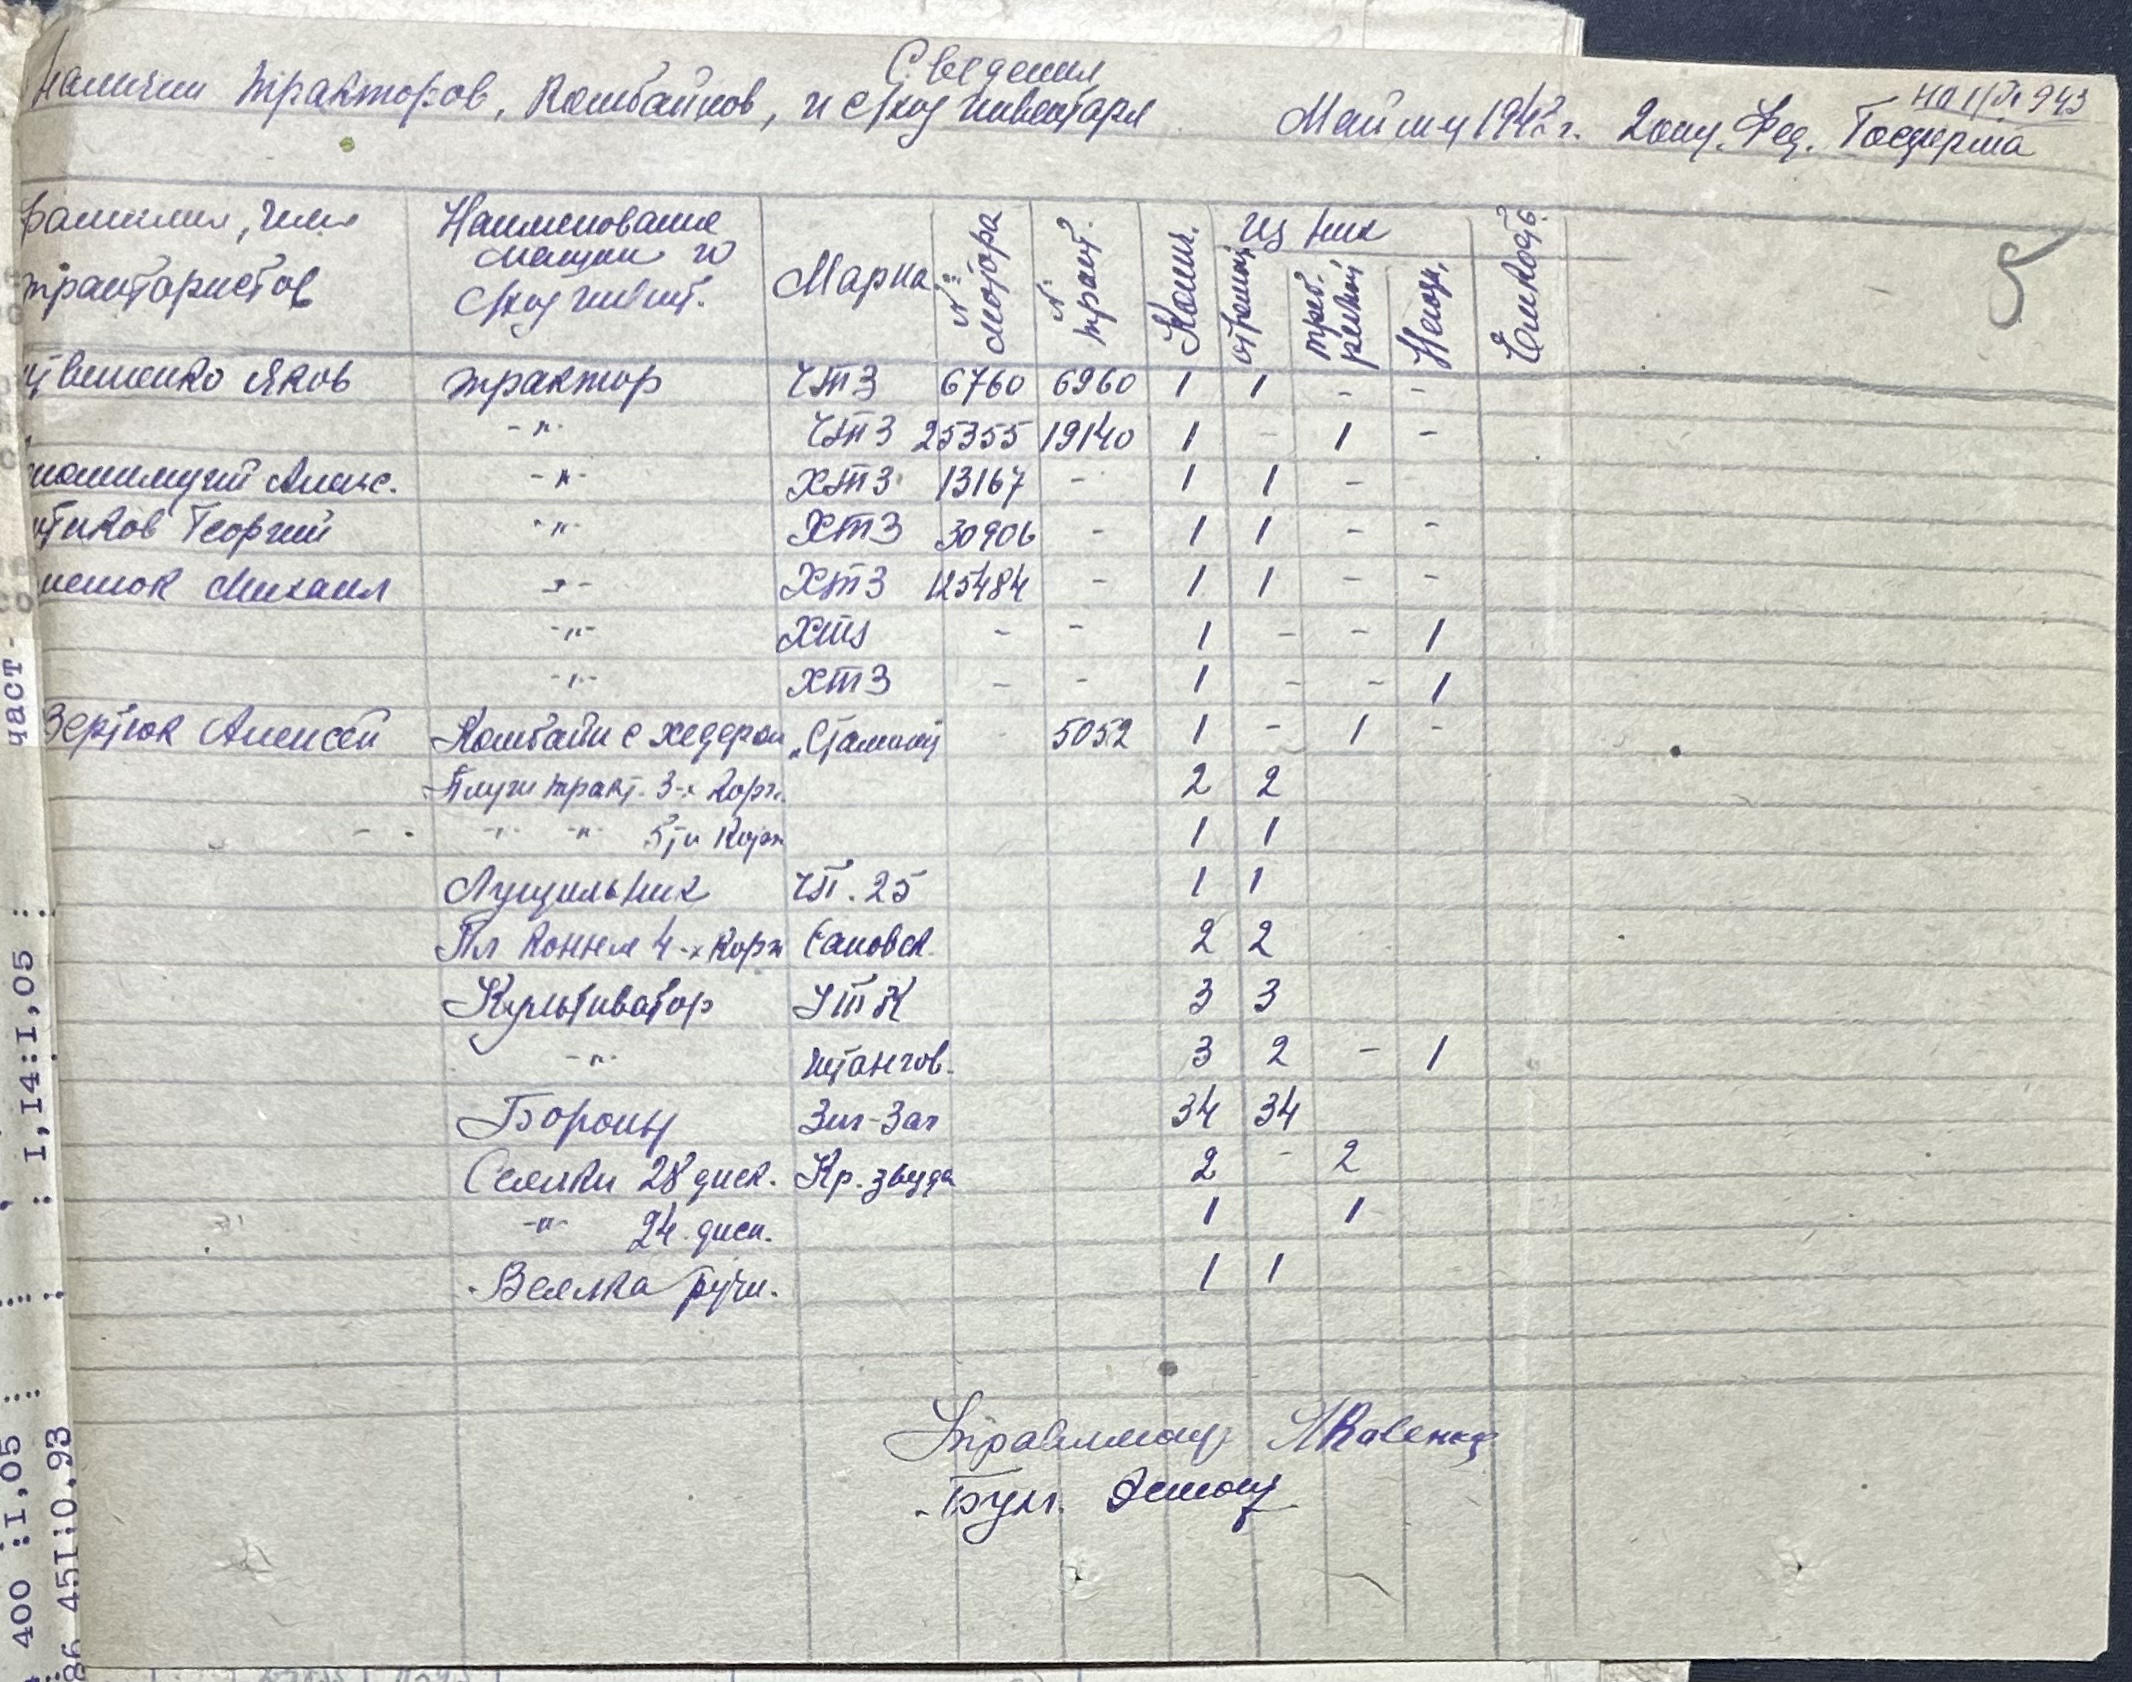 Сведения
наличии тракторов, Комбайнов, и с/хоз инвентаря
на 1/VI 943
2 отд. Фед. Госферма
5
фамилия, имя трактористов
Наименование машин и с/хоз инвент.
Марка
№ мотора
№ тракт.
Колич.
из них
отремон
треб. ремонт
Негодн.
Яков трактор ЧТЗ 6760 6960 1 1 - -
-"- ЧТЗ 25355 19140 1 - 1 -
Алекс. -"- ХТЗ 13167 - 1 1 -
Георгий -"- ХТЗ 30906 - 1 1 - -
Михаил -"- ХТЗ 125484 - 1 1 - -
-"- ХТЗ - - 1 - - 1
-"- ХТЗ - - 1 - - 1
Алексей Комбайн с хедером „Сталинец 5052 1 - 1 -
Плуги тракт. 3-х корп. 2 2
-"- -"- 5ти Корп 1 1
Лущильник ЧТ. 25 1 1
Пл конные 4-х Корп Саковск. 2 2
Культиватор УТК 3 3
-"- штангов. 3 2 - 1
Бороны Зиг-Заг 34 34
Сеялки 28 диск. Кр. звезда 2 - 2
-"- 24 диск. 1 1
Веялка ручн. 1 1
Бухг.
част-
: I,I4:I,05 :
400 :I,05 :
86 45I:0.93